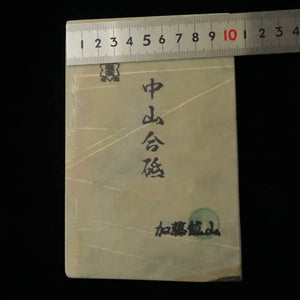 1 2 3 4 5 6 7 8 9 10 1 2 3
中山合砥
加藤鉱山